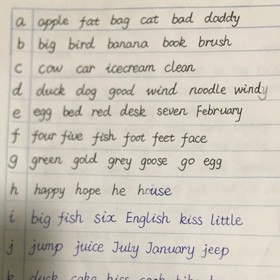 a apple fat bag cat bad daddy
b big bird banana book brush
c cow car icecream clean
d duck dog good wind noodle windy
e egg bed red desk seven February
f four five fish foot feet face
g green gold grey goose go egg
h happy hope he house
i big fish six English kiss little
j jump juice July January jeep
k duck cake